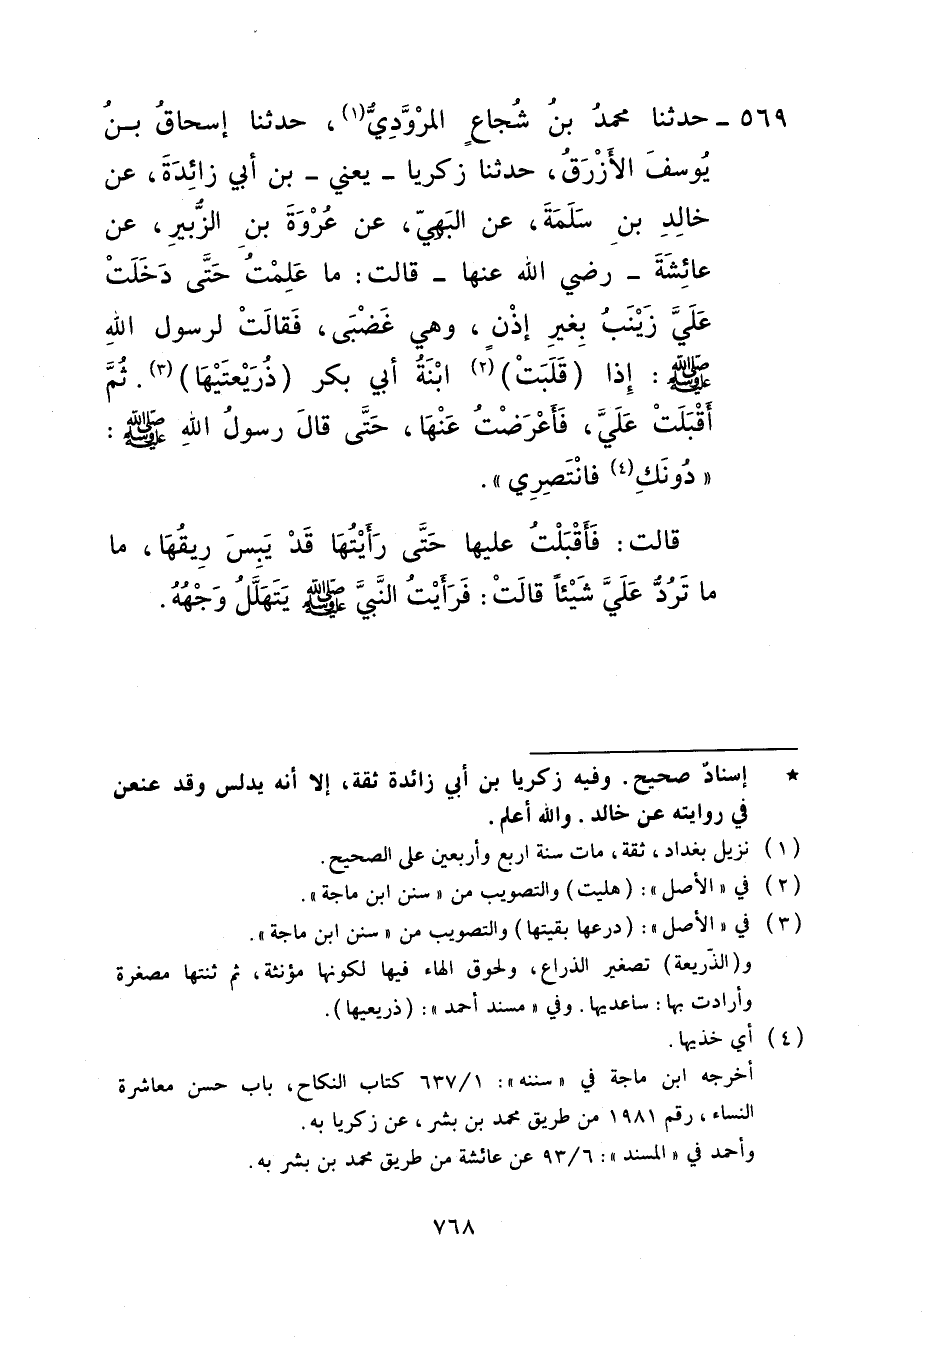 ٥٦٩ ـ حدثنا محمدُ بنُ شُجاعٍ المرْوَّذِيُّ(١)، حدثنا إسحاقُ بـنُ
يُوسفَ الأَزْرَقُ، حدثنا زكريا ـ يعني ـ بن أبي زائِدَةَ، عن
خالِدِ بنِ سَلَمَةَ، عن البَهِيّ، عن عُرْوَةَ بنِ الزُّبيرِ، عن
عائِشَةَ ـ رضي الله عنها ـ قالت: ما عَلِمْتُ حَتَّى دَخَلَتْ
عَلَيَّ زَيْنَبُ بِغيرِ إذْنٍ، وهي غَضْبَى، فَقالَتْ لرسول اللهِ
ﷺ: إِذا (قَلَبَتْ)(٢) ابْنَةُ أبي بكر (ذُرَيْعتَيْهَا)(٣). ثُمَّ
أَقْبَلَتْ عَلَيَّ، فَأَعْرَضْتُ عَنْهَا، حَتَّى قالَ رسولُ اللهِ ﷺ:
«دُونَكِ(٤) فانْتَصِرِي».
قالت: فَأَقْبَلْتُ عليها حَتَّى رَأَيْتُهَا قَدْ يَبِسَ رِيقُهَا، ما
ما تَرُدُّ عَلَيَّ شَيْئاً قالَتْ: فَرَأَيْتُ النَّبيَّ ﷺ يَتَهَلَّلُ وَجْهُهُ.
★ إسنادٌ صحيح. وفيه زكريا بن أبي زائدة ثقة، إلا أنه يدلس وقد عنعن
في روايته عن خالد. والله أعلم.
(١) نزيل بغداد، ثقة، مات سنة اربع وأربعين على الصحيح.
(٢) في «الأصل»: (هليت) والتصويب من «سنن ابن ماجة».
(٣) في «الأصل»: (درعها بقيتها) والتصويب من «سنن ابن ماجة».
و(الذّريعة) تصغير الذراع، ولحوق الهاء فيها لكونها مؤنثة، ثم ثنتها مصغرة
وأرادت بها: ساعديها. وفي «مسند أحمد»: (ذريعيها).
(٤) أي خذيها.
أخرجه ابن ماجة في «سننه»: ١/٦٣٧ كتاب النكاح، باب حسن معاشرة
النساء، رقم ١٩٨١ من طريق محمد بن بشر، عن زكريا به.
وأحمد في «المسند»: ٦/٩٣ عن عائشة من طريق محمد بن بشر به.
٧٦٨